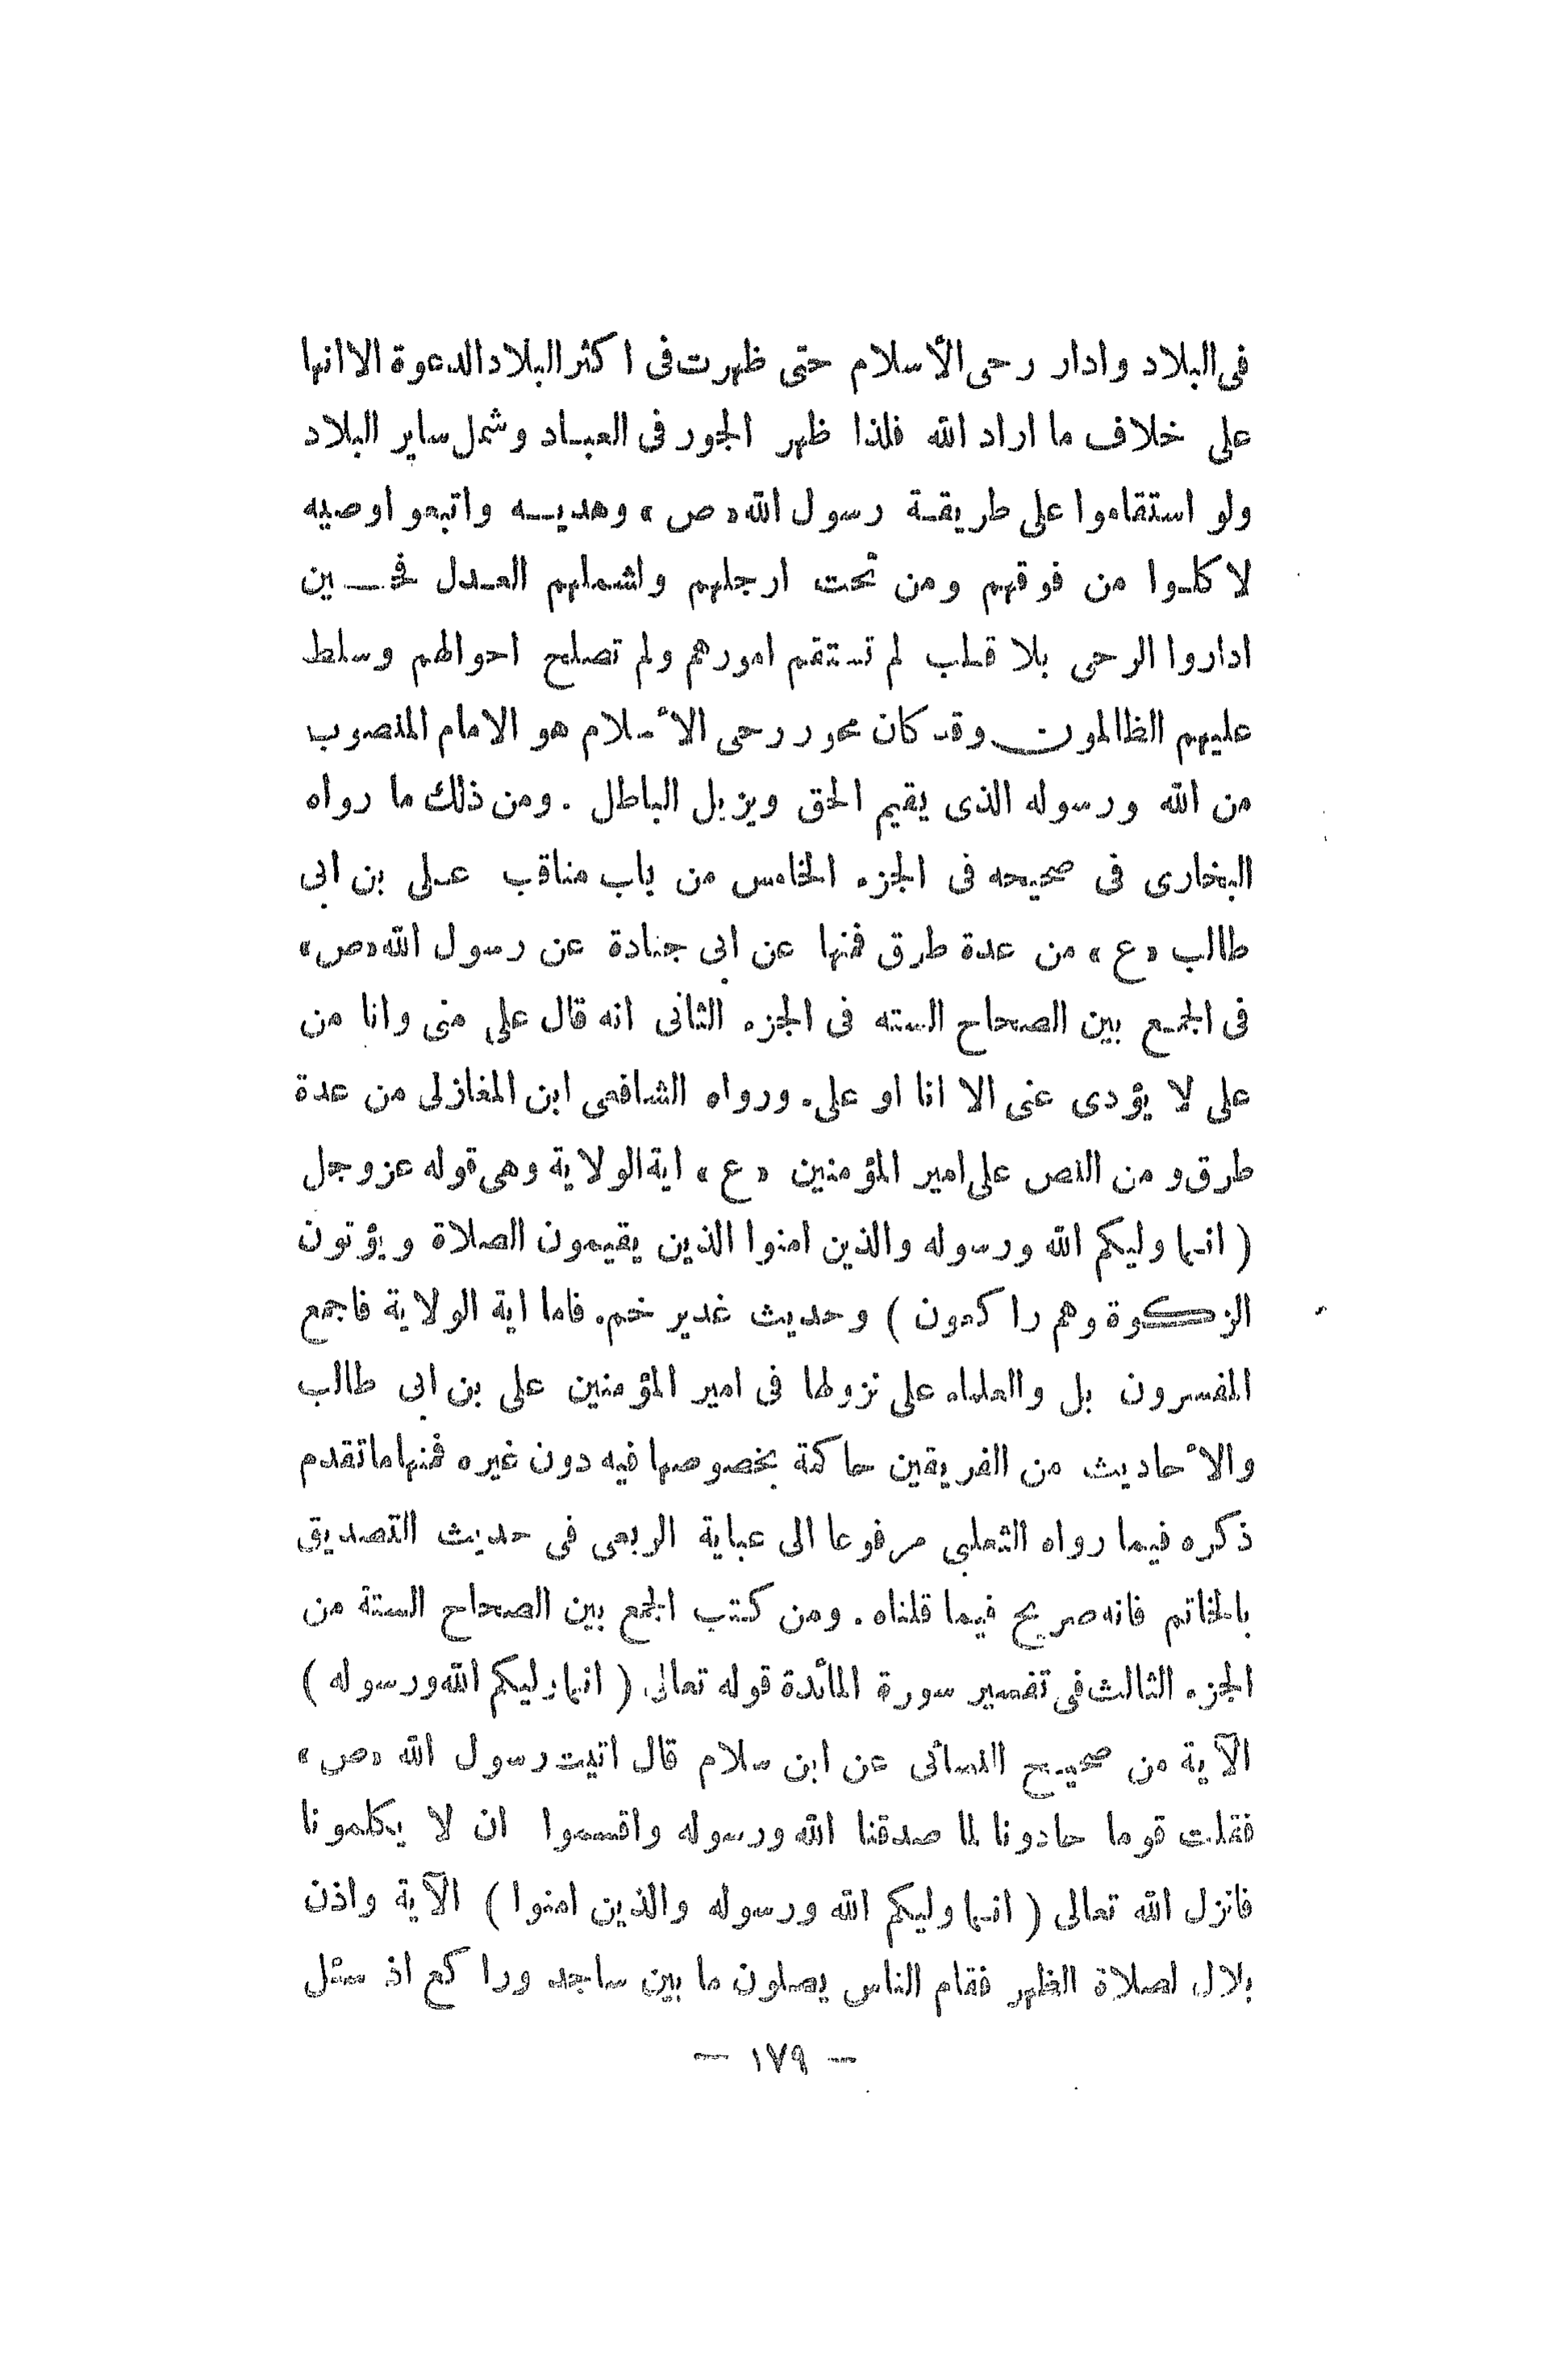 فى البلاد وادار رحى الأسلام حتى ظهرت فى اكثر البلاد الدعوة الا انها
على خلاف ما اراد الله فلذا ظهر الجور فى العباد وشمل ساير البلاد
ولو استقاموا على طريقة رسول الله «ص» وهديه واتبعو اوصيه
لا كلوا من فوقهم ومن تحت ارجلهم واشملهم العدل فحين
اداروا الرحى بلا قطب لم تستقم امورهم ولم تصلح احوالهم وسلط
عليهم الظالمون وقد كان محور رحى الأسلام هو الامام المنصوب
من الله ورسوله الذى يقيم الحق ويزيل الباطل . ومن ذلك ما رواه
البخارى فى صحيحه فى الجزء الخامس من باب مناقب على بن ابى
طالب «ع» من عدة طرق فمنها عن ابى جنادة عن رسول الله «ص»
فى الجمع بين الصحاح السته فى الجزء الثانى انه قال على منى وانا من
على لا يؤدى عنى الا انا او على. ورواه الشافعى ابن المغازلى من عدة
طرق ومن النص على امير المؤمنين «ع» اية الولاية وهى قوله عز وجل
( انما وليكم الله ورسوله والذين امنوا الذين يقيمون الصلاة ويؤتون
الزكوة وهم راكعون ) وحديث غدير خم. فاما اية الولاية فاجمع
المفسرون بل والعلماء على نزولها فى امير المؤمنين على بن ابى طالب
والأحاديث من الفريقين حاكمة بخصوصها فيه دون غيره فمنها ما تقدم
ذكره فيما رواه الثعلبي مرفوعا الى عباية الربعى فى حديث التصديق
بالخاتم فانه صريح فيما قلناه . ومن كتب الجمع بين الصحاح الستة من
الجزء الثالث فى تفسير سورة المائدة قوله تعالى ( انما وليكم الله ورسوله )
الآية من صحيح النسائى عن ابن سلام قال اتيت رسول الله «ص»
فقلت قوما حادونا لما صدقنا الله ورسوله واقسموا ان لا يكلمونا
فانزل الله تعالى ( انما وليكم الله ورسوله والذين امنوا ) الآية واذن
بلال لصلاة الظهر فقام الناس يصلون ما بين ساجد وراكع اذ سئل
— ١٧٩ —